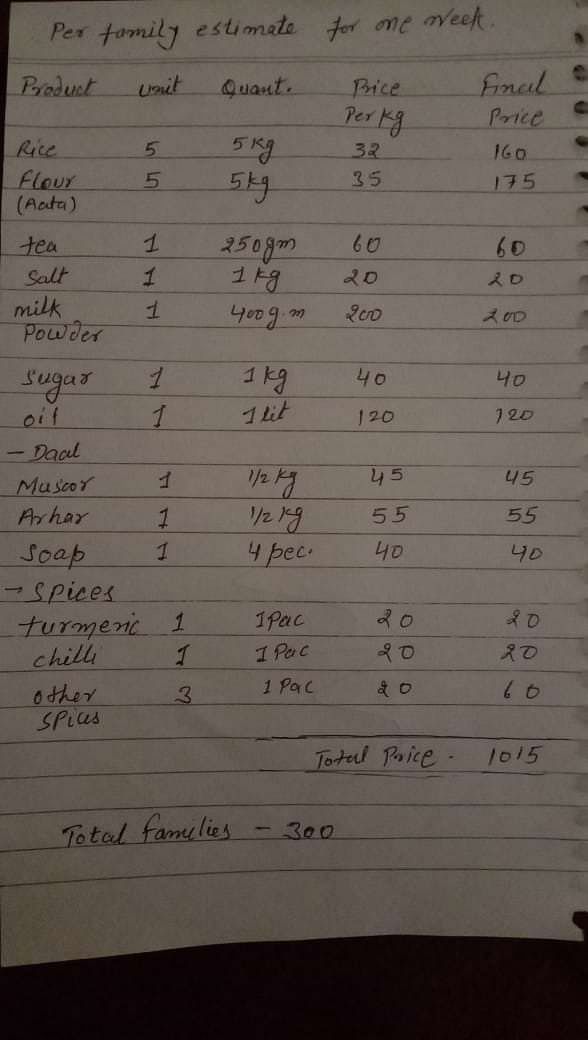 Per family estimate for one week.
Product unit Quant. Price Final
Per kg Price
Rice 5 5 kg 32 160
Flour 5 5kg 35 175
(Aata)
tea 1 250gm 60 60
Salt 1 1 kg 20 20
milk 1 400g.m 200 200
Powder
Sugar 1 1 kg 40 40
oil 1 1 lit 120 120
- Daal
Muscor 1 1/2 kg 45 45
Arhar 1 1/2 kg 55 55
Soap 1 4 pec. 40 40
- Spices
turmeric 1 1Pac 20 20
chilli 1 1 Pac 20 20
other 3 1 Pac 20 60
Spices
Total Price - 1015
Total families - 300